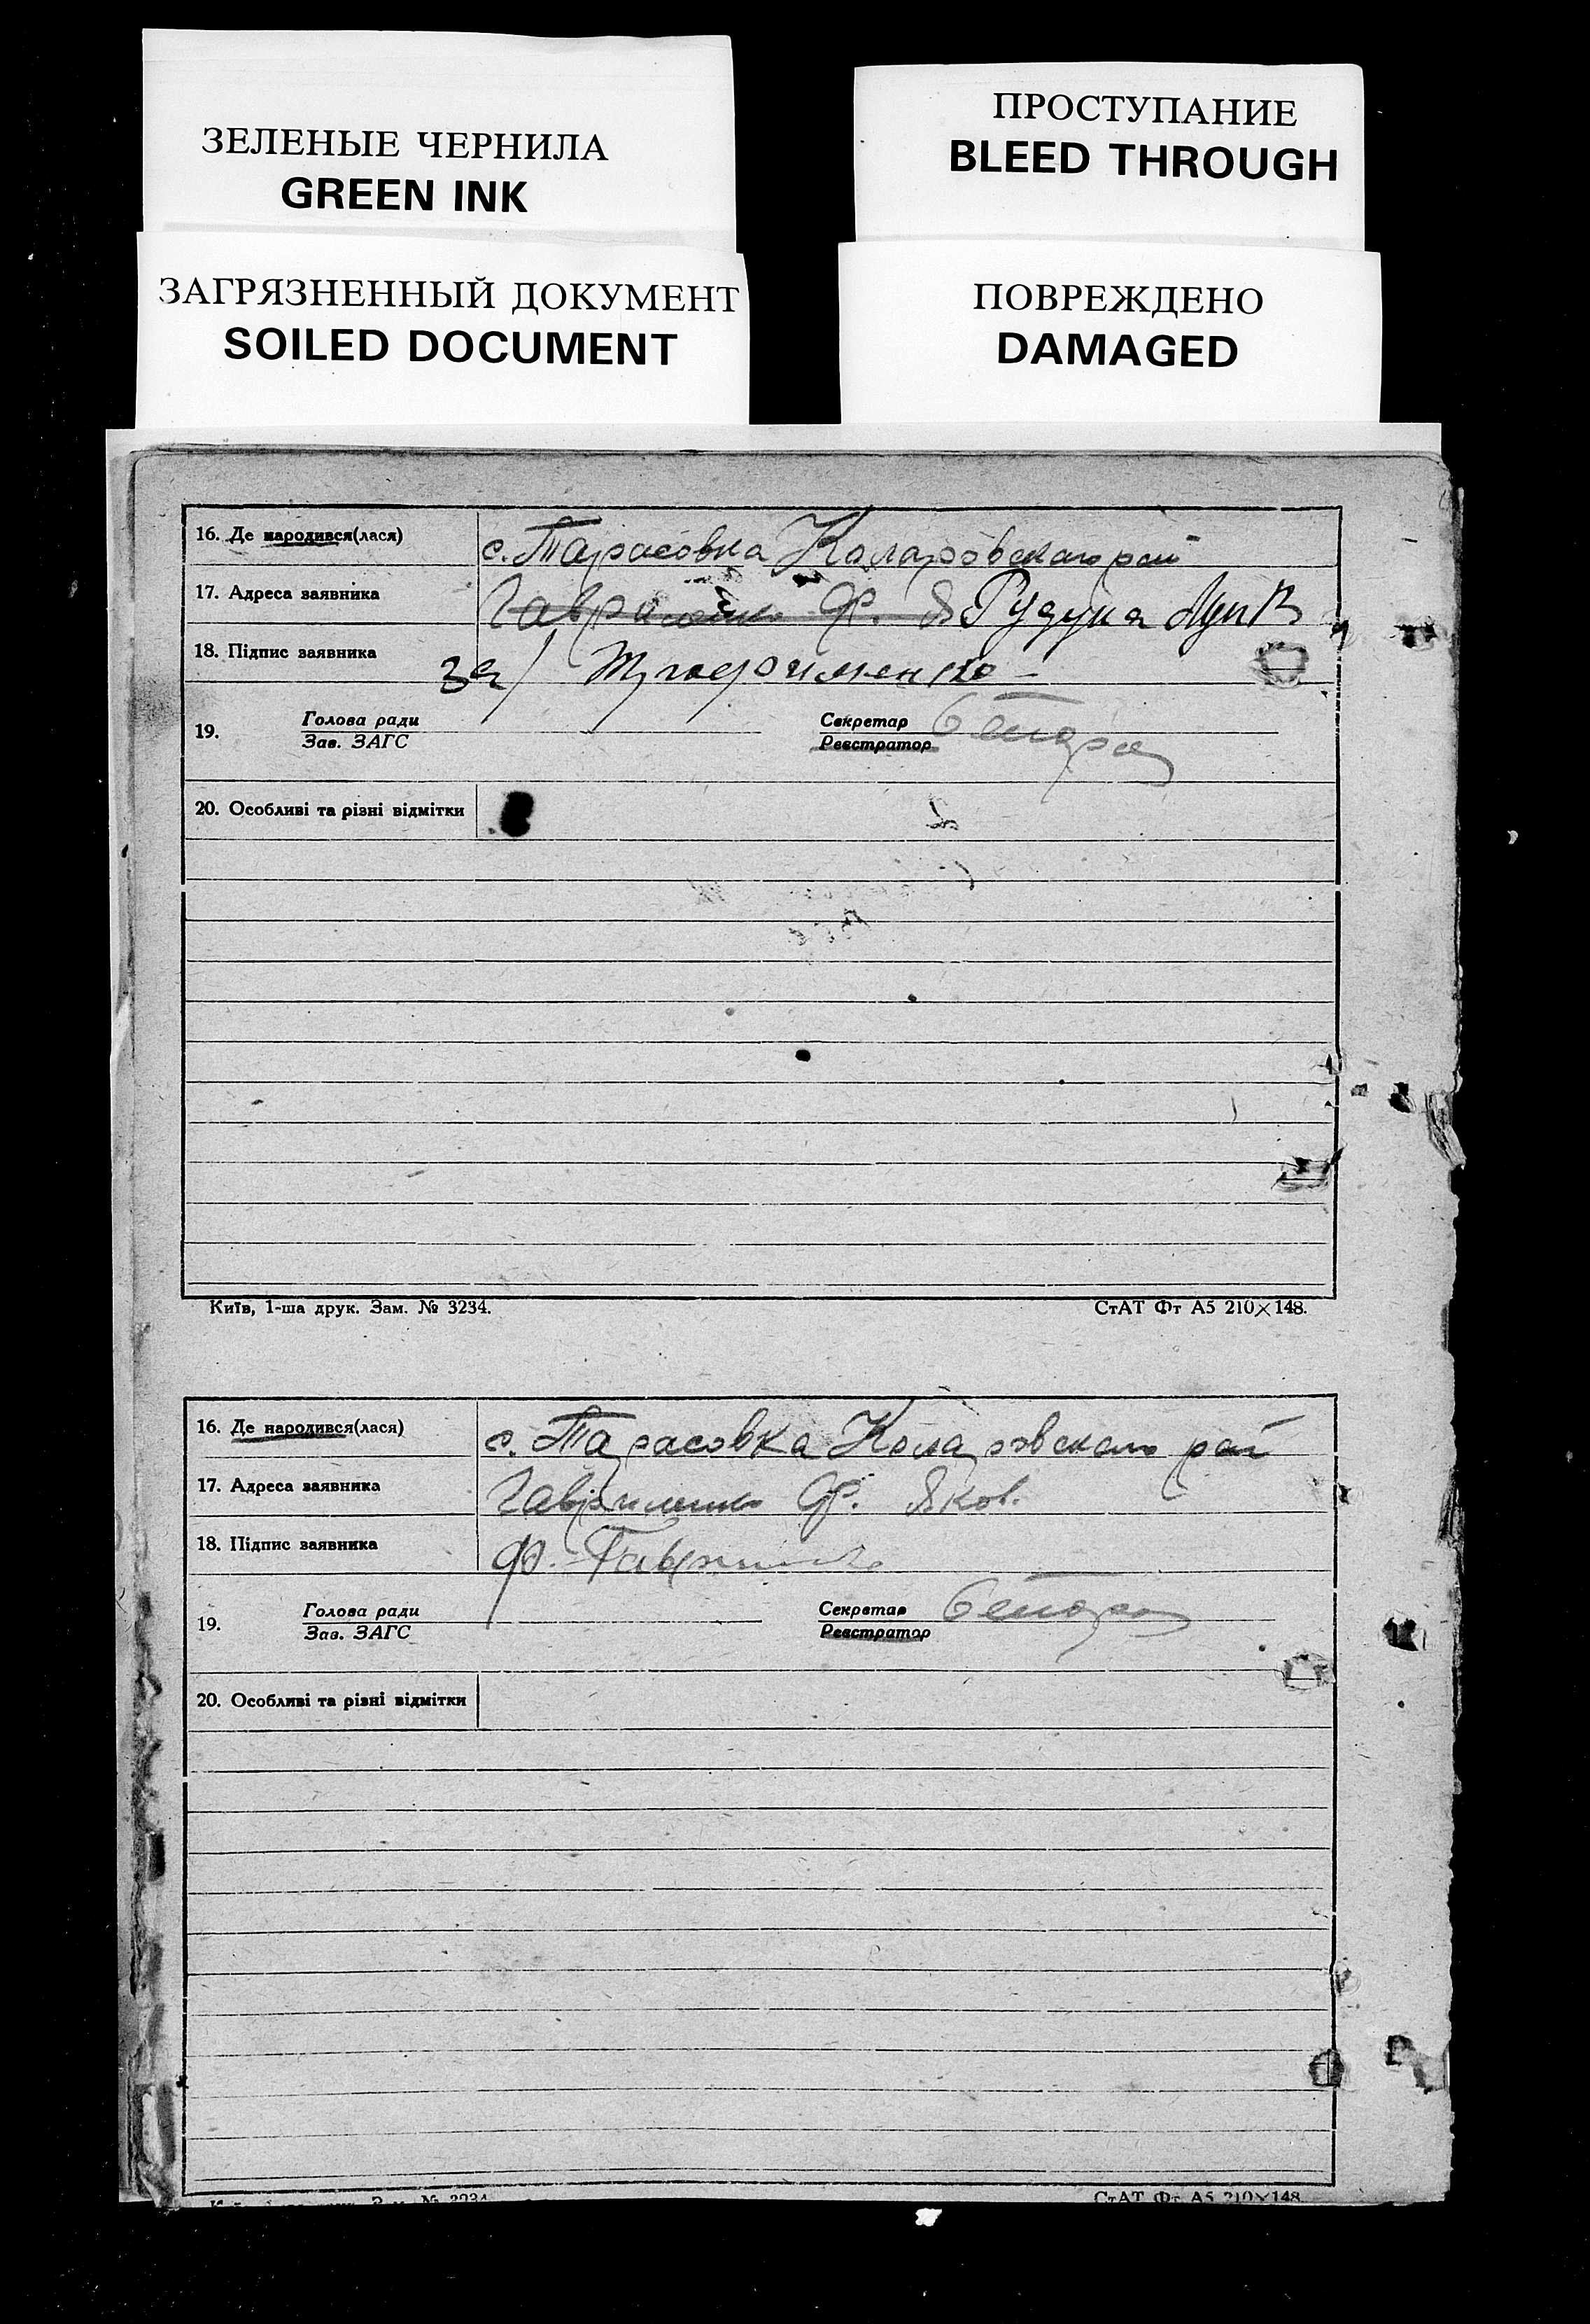 ЗЕЛЕНЫЕ ЧЕРНИЛА
GREEN INK
ПРОСТУПАНИЕ
BLEED THROUGH
ЗАГРЯЗНЕННЫЙ ДОКУМЕНТ
SOILED DOCUMENT
ПОВРЕЖДЕНО
DAMAGED
16. Де народився(лася) с. Тарасовка Коларовского рай
17. Адреса заявника Гавриленко Ф. Я Рудука
18. Підпис заявника за/
19. Голова ради Секретар
Зав. ЗАГС Реєстратор
20. Особливі та різні відмітки
Київ, 1-ша друк. Зам. № 3234. СтАТ Фт А5 210×148.
16. Де народився(лася) с. Тарасовка Коларовского рай
17. Адреса заявника Гавриленко Ф. Яков.
18. Підпис заявника Ф. Гавриленко
19. Голова ради Секретар
Зав. ЗАГС Реєстратор
20. Особливі та різні відмітки
№ 3234 СтАТ Фт А5 210×148